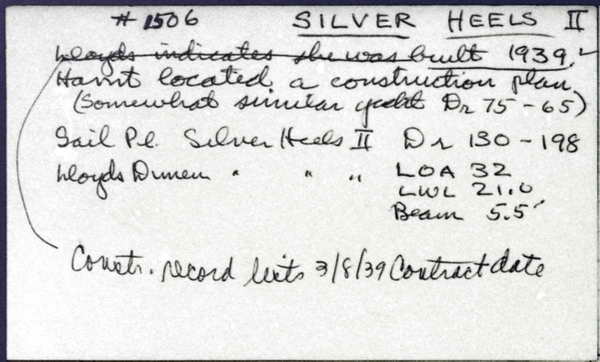 # 1506 SILVER HEELS II
Lloyds indicates she was built 1939.
Havnt located a construction plan
(Somewhat similar yacht Dr 75-65)
Sail Pl. Silver Heels II Dr 130-198
Lloyds Dimen " " " LOA 32
LWL 21.0
Beam 5.5'
Constr. record lists 3/8/39 Contract date